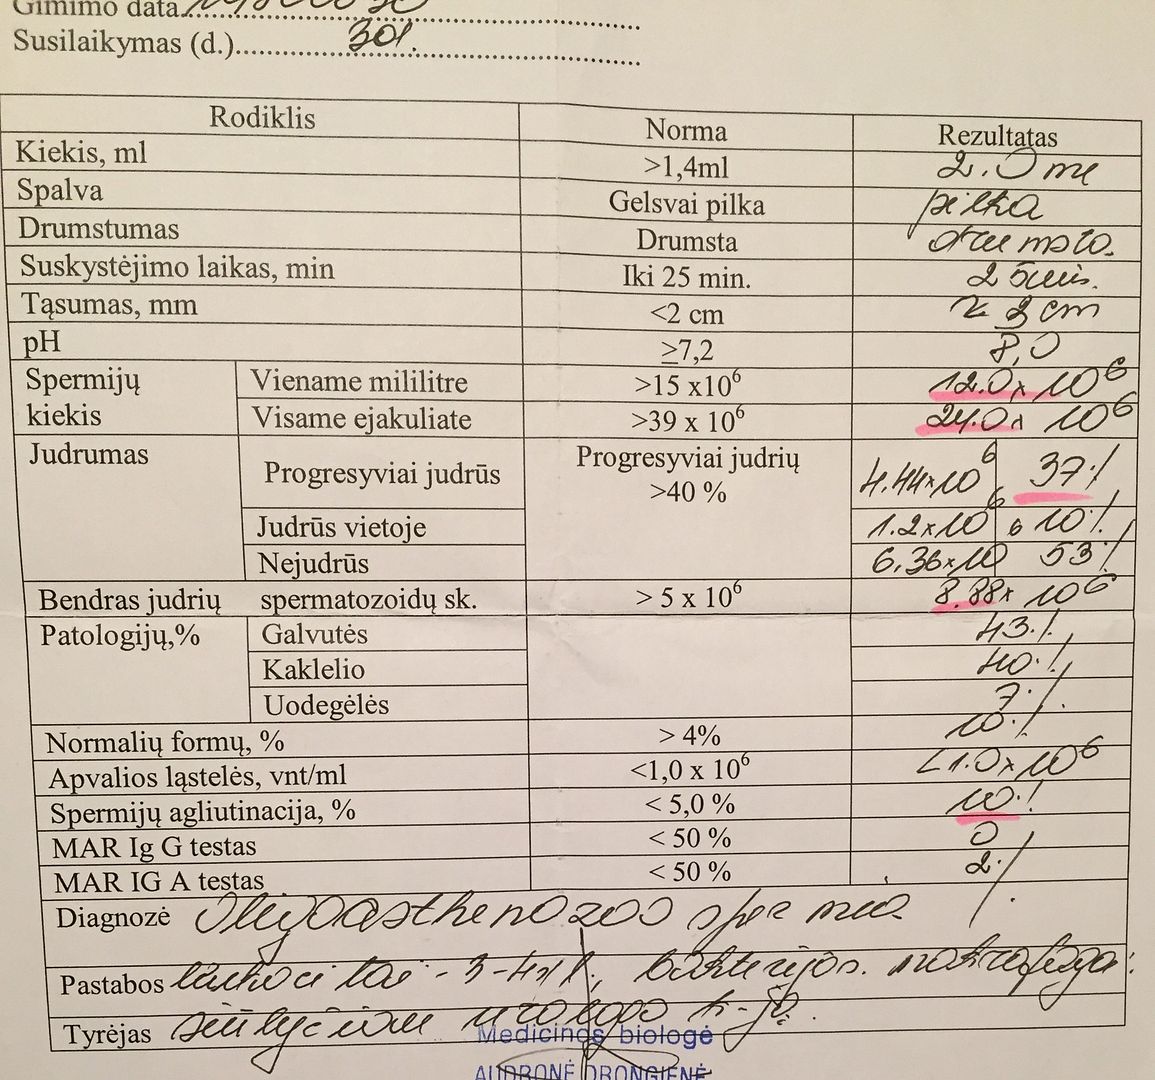 Gimimo data
Susilaikymas (d.) 3d.
Rodiklis Norma Rezultatas
Kiekis, ml >1,4ml 2.0 ml
Spalva Gelsvai pilka pilka
Drumstumas Drumsta drumsta.
Suskystėjimo laikas, min Iki 25 min. 25min.
Tąsumas, mm <2 cm 2 cm
pH ≥7,2 8,0
Spermijų kiekis Viename mililitre >15 x10⁶ 12.0x 10⁶
Visame ejakuliate >39 x 10⁶ 24.0x 10⁶
Judrumas Progresyviai judrūs Progresyviai judrių >40 % 4.44x10⁶ 37%
Judrūs vietoje 1.2x10⁶ 10%
Nejudrūs 6.36x10⁶ 53%
Bendras judrių spermatozoidų sk. > 5 x 10⁶ 8.88x 10⁶
Patologijų,% Galvutės 43%
Kaklelio 40%
Uodegėlės 7%
Normalių formų, % > 4% 10%
Apvalios ląstelės, vnt/ml <1,0 x 10⁶ <1.0x10⁶
Spermijų agliutinacija, % < 5,0 % 10%
MAR Ig G testas < 50 % 0
MAR IG A testas < 50 % 2%
Diagnozė Oligoasthenozoospermia.
Pastabos leukocitai - 3-4x1; bakterijos. makrofagai.
Tyrėjas siūlyčiau urologo
Medicinos biologė
AUDRONĖ DRONGIENĖ